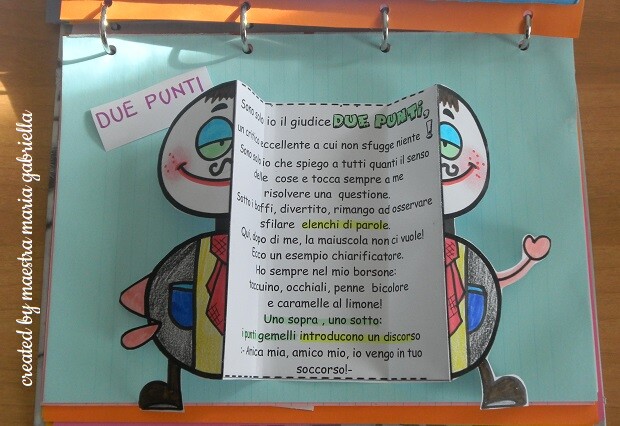 DUE PUNTI
Sono solo io il giudice DUE PUNTI,
un critico eccellente a cui non sfugge niente !
Sono solo io che spiego a tutti quanti il senso
delle cose e tocca sempre a me
risolvere una questione.
Sotto i baffi, divertito, rimango ad osservare
sfilare elenchi di parole.
Qui, dopo di me, la maiuscola non ci vuole!
Ecco un esempio chiarificatore.
Ho sempre nel mio borsone:
taccuino, occhiali, penne bicolore
e caramelle al limone!
Uno sopra , uno sotto:
i punti gemelli introducono un discorso
:- Amica mia, amico mio, io vengo in tuo
soccorso!-
created by maestra maria gabriella